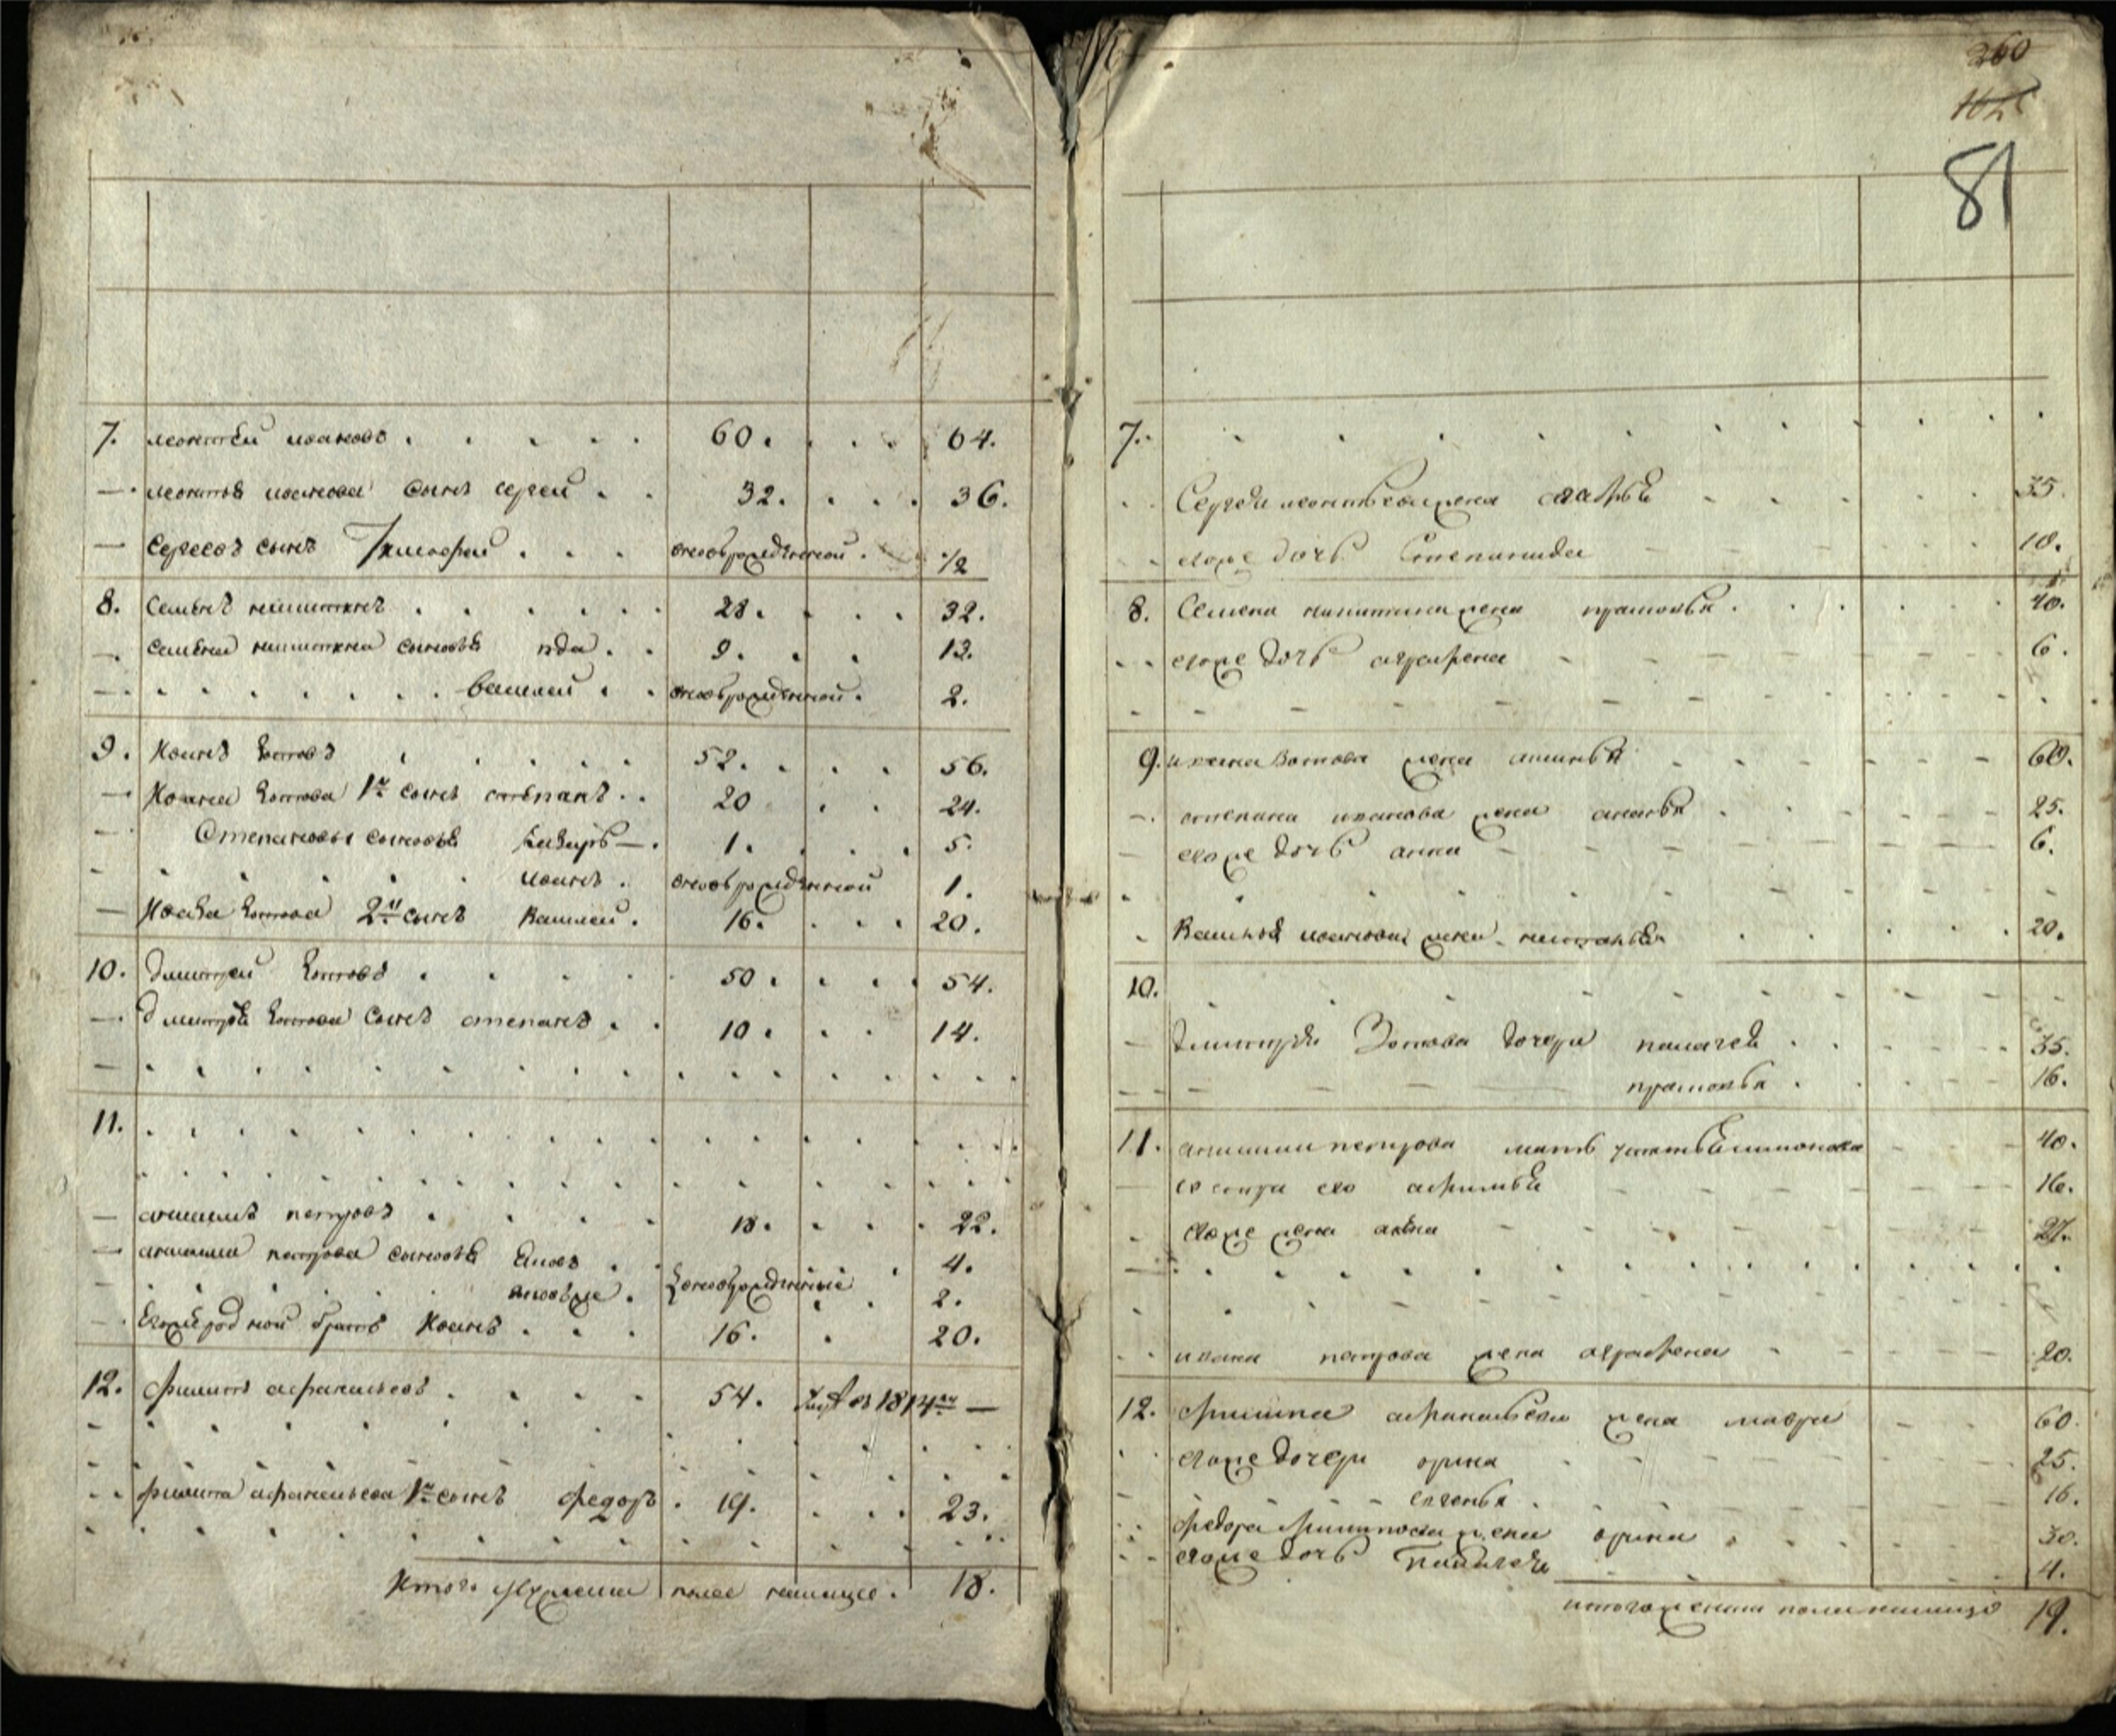 7. леонтей ивановъ 60. 64.
леонтья иванова сынъ сергей 32. 36.
Сергеевъ сынъ Тимофей вновърожденной. 1/2
8. Семенъ никитинъ 28. 32.
семена никитина сыновья 9. 13.
василей вновърожденной. 2.
9. Иванъ Зотовъ 52. 56.
Ивана Зотова 1й сынъ степанъ 20 24.
Степановы сыновья Лазарь 1. 5.
иванъ вновърожденной 1.
Ивана Зотова 2й сынъ Василей. 16. 20.
10. Дмитрей Зотовъ 50. 54.
Дмитрея Зотова сынъ степанъ 10. 14.
11.
анисимъ петровъ 18. 22.
анисима петрова сыновья 4.
вновърожденные 2.
Егоже родной братъ Иванъ 16. 20.
12. филипъ афанасьевъ 54. въ 1814мъ
филипа афанасьева 1й сынъ федоръ 19. 23.
Итого мужеска полу налицо. 18.
260
81
7.
Сергея леонтьева жена 35.
егоже дочь Степанида 10.
8. Семена никитина жена прасковья 40.
егоже дочь аграфена 6.
9. ивана Зотова жена 60.
степана иванова жена 25.
егоже дочь анна 6.
Василья иванова жена настасья 20.
10.
Дмитрея Зотова дочери палагея 35.
прасковья 16.
11. анисима петрова мать 40.
сестра его афимья 16.
егоже жена 27.
ивана петрова жена аграфена 20.
12. филипа афанасьева жена мавра 60.
егоже дочери орина 25.
евгенья 16.
федора филипова жена орина 30.
егоже дочь палагея 4.
итого женска полу налицо 19.